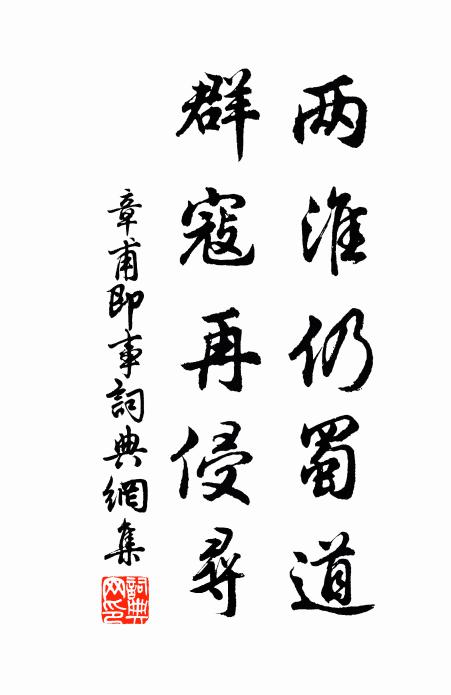 两淮仍蜀道
群寇再侵尋
章甫即事詞典網集
詞典网印